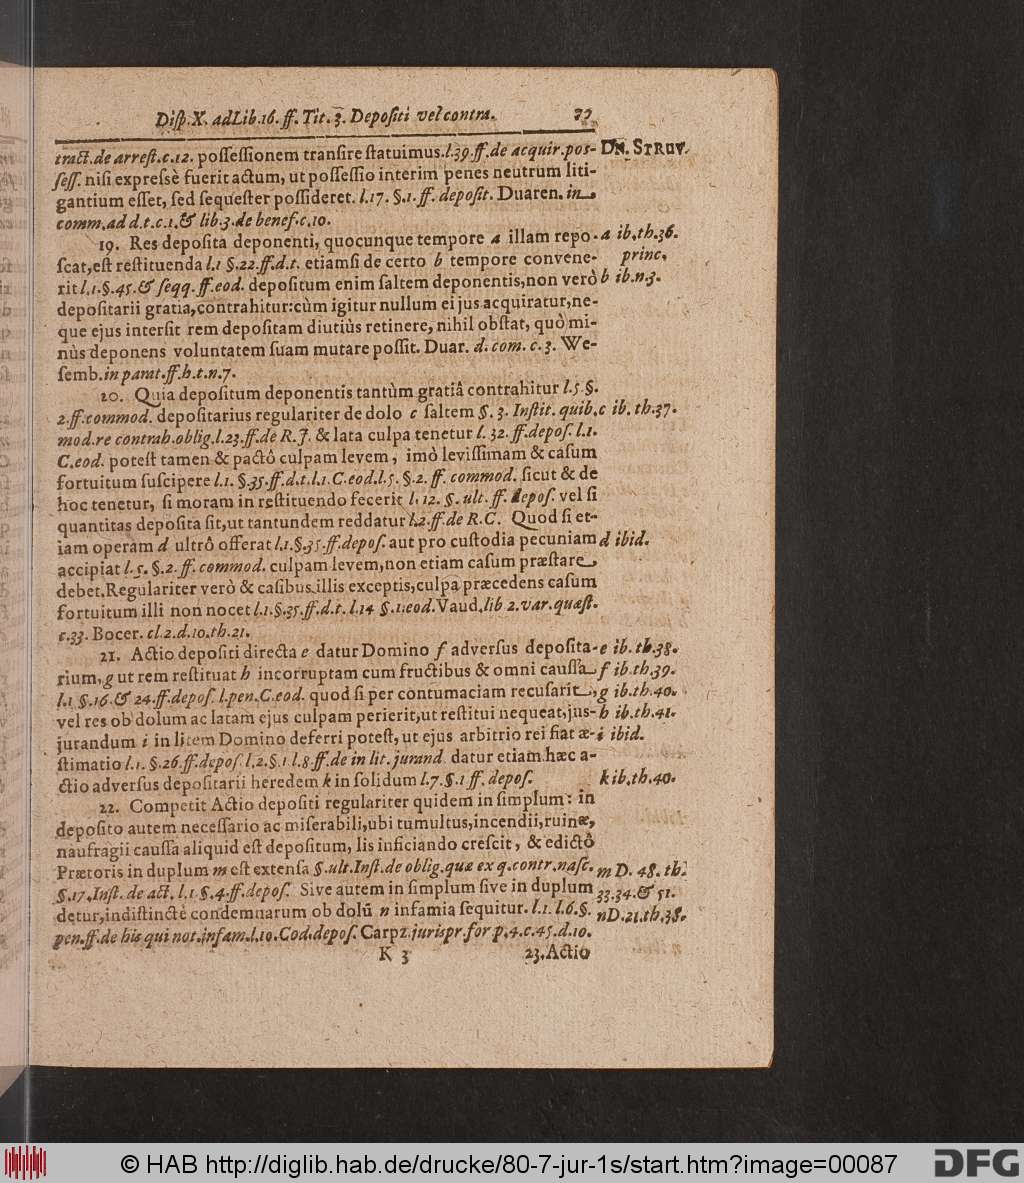 Diſp. X. ad Lib. 16. ff. Tit. 3. Depoſiti vel contra.
tract. de arreſt. c. 12. poſſeſſionem tranſire ſtatuimus. l. 39. ff. de acquir. poſ- DN. STRUV.
ſeſſ. niſi expreſsè fuerit actum, ut poſſeſſio interim penes neutrum liti-
gantium eſſet, ſed ſequeſter poſſideret. l. 17. §. 1. ff. depoſit. Duaren. in
comm. ad d. t. c. 1. & lib. 3. de benef. c. 10.
19. Res depoſita deponenti, quocunque tempore a illam repo- a ib. th. 36.
ſcat, eſt reſtituenda l. 1 §. 22. ff. d. t. etiamſi de certo b tempore convene- princ.
rit l. 1. §. 45. & ſeqq. ff. eod. depoſitum enim ſaltem deponentis, non verò b ib. n. 3.
depoſitarii gratia, contrahitur: cùm igitur nullum ei jus acquiratur, ne-
que ejus interſit rem depoſitam diutiùs retinere, nihil obſtat, quò mi-
nùs deponens voluntatem ſuam mutare poſſit. Duar. d. com. c. 3. We-
ſemb. in parat. ff. h. t. n. 7.
20. Quia depoſitum deponentis tantùm gratiâ contrahitur l. 5. §.
2. ff. commod. depoſitarius regulariter de dolo c ſaltem §. 3. Inſtit. quib. c ib. th. 37.
mod. re contrah. oblig. l. 23. ff. de R. J. & lata culpa tenetur l. 32. ff. depoſ. l. 1.
C. eod. poteſt tamen & pactô culpam levem, imò leviſſimam & caſum
fortuitum ſuſcipere l. 1. §. 35. ff. d. t. l. 1. C. eod. l. 5. §. 2. ff. commod. ſicut & de
hoc tenetur, ſi moram in reſtituendo fecerit l. 12. §. ult. ff. depoſ. vel ſi
quantitas depoſita ſit, ut tantundem reddatur l. 2. ff. de R. C. Quod ſi et-
iam operam d ultrô offerat l. 1. §. 35. ff. depoſ. aut pro cuſtodia pecuniam d ibid.
accipiat l. 5. §. 2. ff. commod. culpam levem, non etiam caſum præſtare
debet. Regulariter verò & caſibus illis exceptis, culpa præcedens caſum
fortuitum illi non nocet l. 1. §. 35. ff. d. t. l. 14 §. 1. eod. Vaud. lib 2. var. quæſt.
c. 33. Bocer. cl. 2. d. 10. th. 21.
21. Actio depoſiti directa e datur Domino f adverſus depoſita- e ib. th. 38.
rium, g ut rem reſtituat h incorruptam cum fructibus & omni cauſſa f ib. th. 39.
l. 1 §. 16. & 24. ff. depoſ. l. pen. C. eod. quod ſi per contumaciam recuſarit, g ib. th. 40.
vel res ob dolum ac latam ejus culpam perierit, ut reſtitui nequeat, jus- h ib. th. 41.
jurandum i in litem Domino deferri poteſt, ut ejus arbitrio rei fiat æ- i ibid.
ſtimatio l. 1. §. 26. ff. depoſ. l. 2. §. 1 l. 8. ff. de in lit. jurand. datur etiam hæc a-
ctio adverſus depoſitarii heredem k in ſolidum l. 7. §. 1 ff. depoſ. k ib. th. 40.
22. Competit Actio depoſiti regulariter quidem in ſimplum: in
depoſito autem neceſſario ac miſerabili, ubi tumultus, incendii, ruinæ,
naufragii cauſſa aliquid eſt depoſitum, lis inficiando creſcit, & edictô
Prætoris in duplum m eſt extenſa §. ult. Inſt. de oblig. quæ ex q. contr. naſc. m D. 48. th.
§. 17. Inſt. de act. l. 1 §. 4. ff. depoſ. Sive autem in ſimplum ſive in duplum 33. 34. & 51.
detur, indiſtinctè condemnarum ob dolũ n infamia ſequitur. l. 1. l. 6. §. n D. 21. th. 38.
pen. ff. de his qui not. infam. l. 10. Cod. depoſ. Carpz. jurispr. for p. 4. c. 45. d. 10.
K 3 23. Actio
© HAB http://diglib.hab.de/drucke/80-7-jur-1s/start.htm?image=00087 DFG